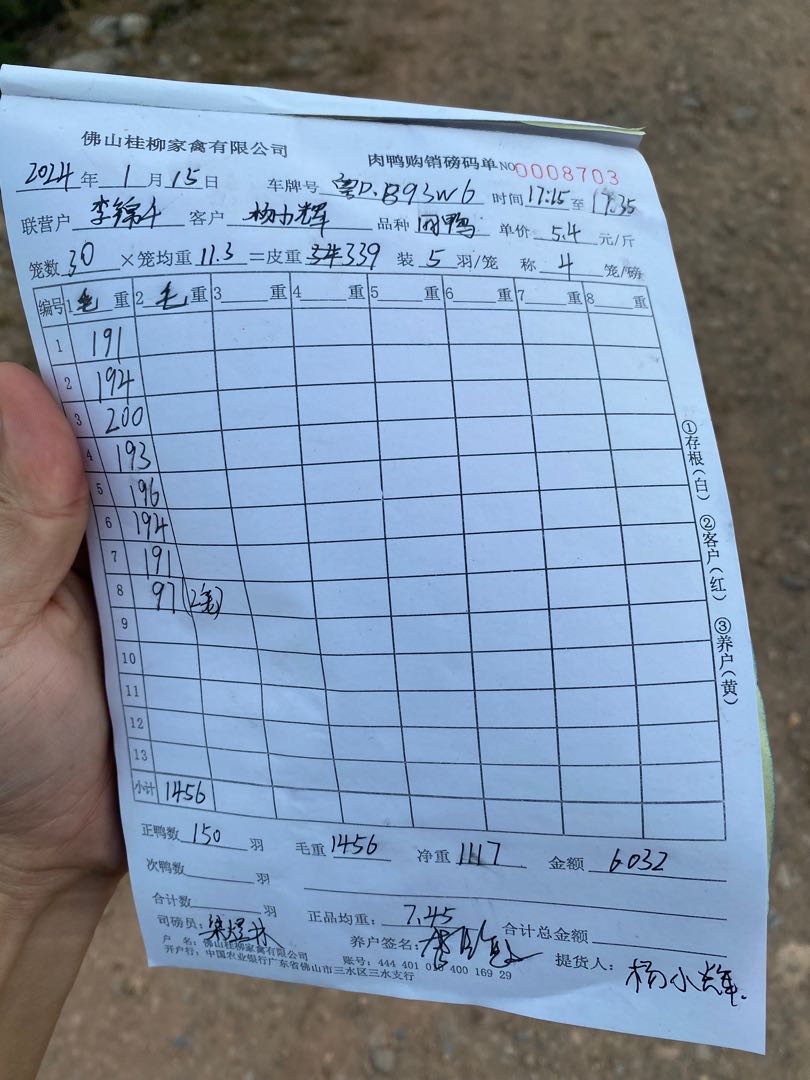 佛山桂柳家禽有限公司 肉鸭购销磅码单 NO 0008703
2024 年 1 月 15 日 车牌号 粤D.B93W6 时间 17:15 至 17:35
联营户 李锦 客户 杨小辉 品种 肉鸭 单价 5.4 元/斤
笼数 30 ×笼均重 11.3 =皮重 339 装 5 羽/笼 称 4 笼/磅
编号 1 毛 重 2 毛 重 3 重 4 重 5 重 6 重 7 重 8 重
1 191
2 194
3 200
4 193
5 196
6 194
7 191
8 97 (2笼)
9
10
11
12
13
小计 1456
①存根(白) ②客户(红) ③养户(黄)
正鸭数 150 羽 毛重 1456 净重 1117 金额 6032
次鸭数 羽
合计数 羽 正品均重: 7.45 合计总金额
司磅员: 梁 林 养户签名: 提货人: 杨小辉.
户 名: 佛山桂柳家禽有限公司 账号: 444 401 010 400 169 29
开户行: 中国农业银行广东省佛山市三水区三水支行